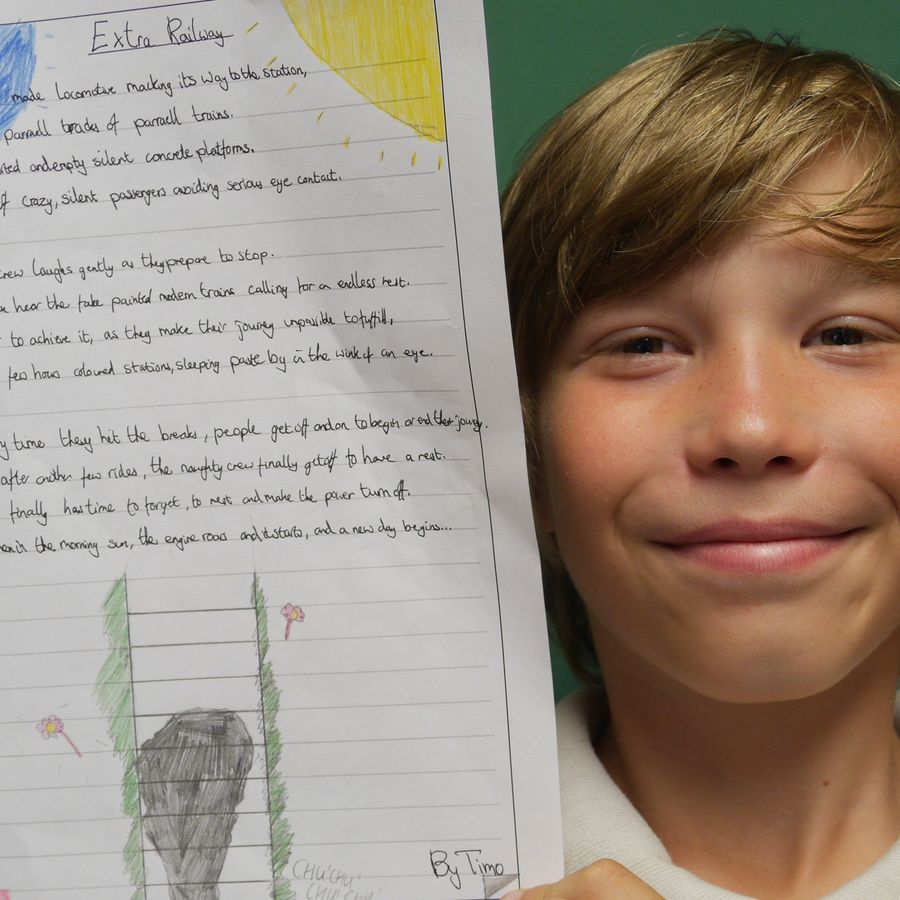 Extra Railway
made locomotive macking its way to the station,
parraell tracks of parraell trains.
and empty silent concrete platforms.
crazy, silent passengers avoiding serious eye contact.
crew laughs gently as they prepare to stop.
hear the fake painted modern trains calling for an endless rest.
to achieve it, as they make their journey unpossible to fulfill,
few hours coloured stations, sleeping paste by in the wink of an eye.
time they hit the breaks, people get off and on to begin or end their journy.
after another few rides, the naughty crew finally getoff to have a rest.
finally has time to forget, to rest and make the power turn off.
in the morning sun, the engine roars and it starts, and a new day begins...
CHU'CHU'
CHU'CHU'
By Timo